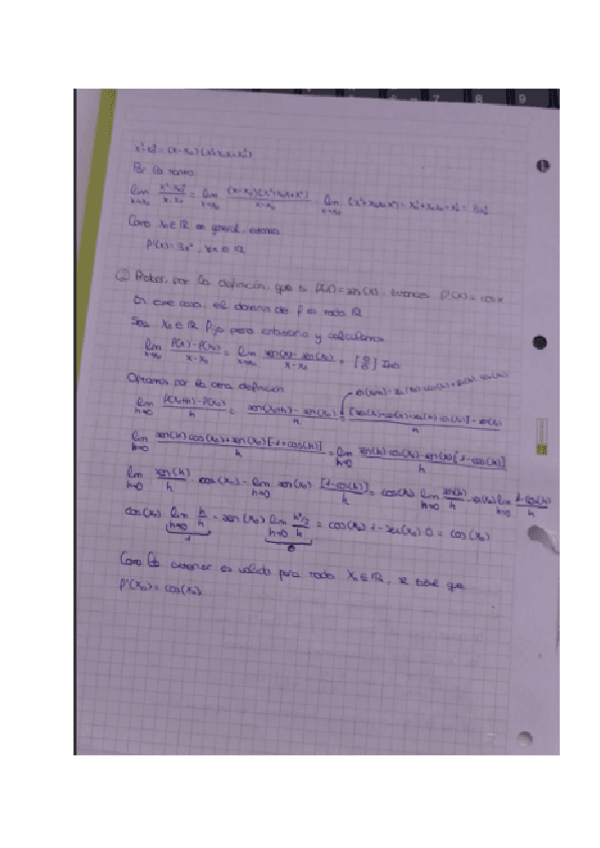 x³-x₀³ = (x-x₀)(x²+x₀x+x₀²)
Por lo tanto
lim x→x₀ (x³-x₀³)/(x-x₀) = lim x→x₀ (x-x₀)(x²+x₀x+x₀²)/(x-x₀) = lim x→x₀ (x²+x₀x+x₀²) = x₀²+x₀x₀+x₀² = 3x₀²
Como x₀∈ℝ en general, entonces
f'(x)=3x², ∀x∈ℝ
② Probar, por la definición, que si f(x)=sen(x), entonces f'(x)=cos x
En este caso, el dominio de f es todo ℝ
Sea x₀∈ℝ fijo pero arbitrario y calculamos
lim x→x₀ (f(x)-f(x₀))/(x-x₀) = lim x→x₀ (sen(x)-sen(x₀))/(x-x₀) = [0/0] Ind
Optamos por la otra definición
lim h→0 (f(x₀+h)-f(x₀))/h = (sen(x₀+h)-sen(x₀))/h =
lim h→0 (sen(h)cos(x₀)+sen(x₀)[-1+cos(h)])/h = lim h→0 (sen(h)cos(x₀)-sen(x₀)[1-cos(h)])/h
lim h→0 sen(h)/h · cos(x₀) - lim h→0 sen(x₀) [1-cos(h)]/h = cos(x₀) lim h→0 sen(h)/h - sen(x₀) lim h→0 (1-cos(h))/h
cos(x₀) lim h→0 h/h - sen(x₀) lim h→0 (h²/2)/h = cos(x₀)·1-sen(x₀)·0 = cos(x₀)
1 0
Como lo anterior es valido para todo x₀∈ℝ, se tiene que
f'(x₀) = cos(x₀)